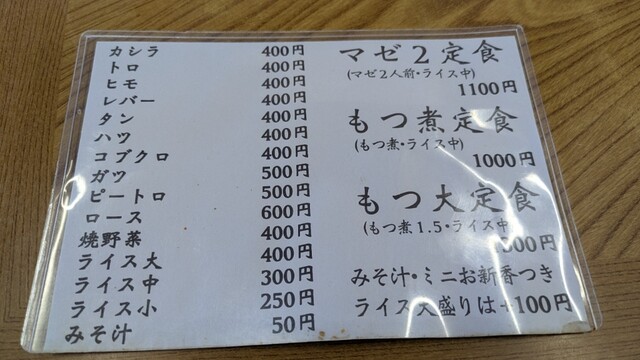 カシラ 400円
トロ 400円
ヒモ 400円
レバー 400円
タン 400円
ハツ 400円
コブクロ 400円
ガツ 500円
ピートロ 500円
ロース 600円
焼野菜 400円
ライス大 400円
ライス中 300円
ライス小 250円
みそ汁 50円
マゼ2定食
(マゼ2人前・ライス中)
1100円
もつ煮定食
(もつ煮・ライス中)
1000円
もつ大定食
(もつ煮1.5・ライス中)
みそ汁・ミニお新香つき
ライス大盛りは+100円